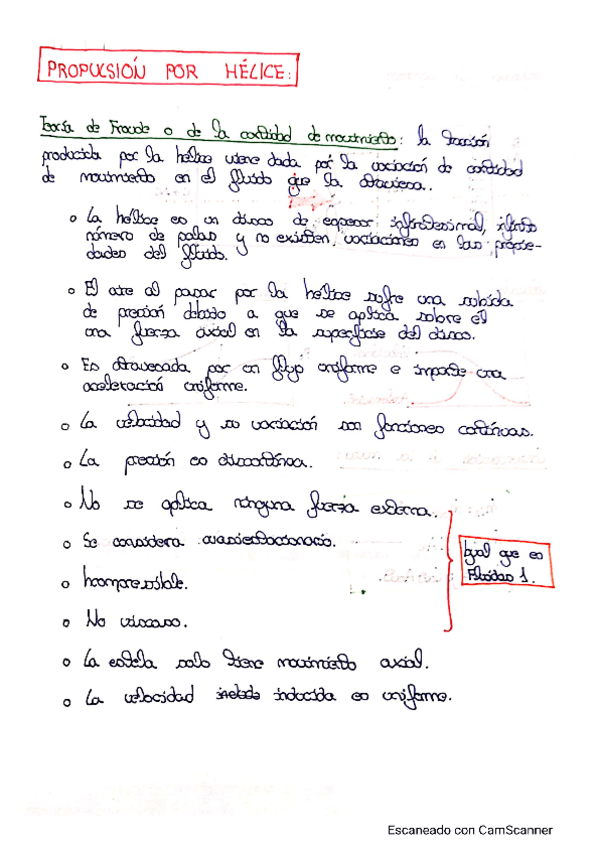 PROPULSIÓN POR HÉLICE:
Teoría de Froude o de la cantidad de movimiento: la tracción
producida por la hélice viene dada por la variación de cantidad
de movimiento en el fluido que la atraviesa.
o La hélice es un disco de espesor infinitesimal, infinito
número de palas y no existen variaciones en las propie-
dades del fluido.
o El aire al pasar por la hélice sufre una subida
de presión debido a que se aplica sobre él
una fuerza axial en la superficie del disco.
o Es atravesada por un flujo uniforme e imparte una
aceleración uniforme.
o La velocidad y su variación son funciones continuas.
o La presión es discontinua.
o No se aplica ninguna fuerza externa.
o Se considera cuasiestacionario.
o Incompresible.
o No viscoso.
Igual que en
Fluidos 1.
o La estela solo tiene movimiento axial.
o La velocidad inducida es uniforme.
Escaneado con CamScanner